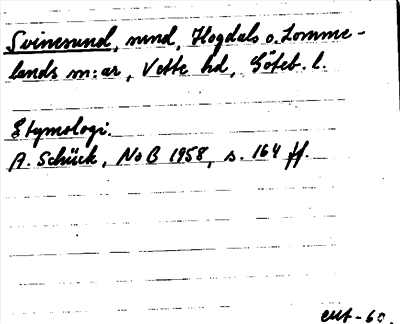 Svinesund, sund, Hogdals o. Lomme-
lands sn:ar, Vette hd, Göteb. l.
Etymologi.
A. Schück, NoB 1958, s. 164 ff.
-60.